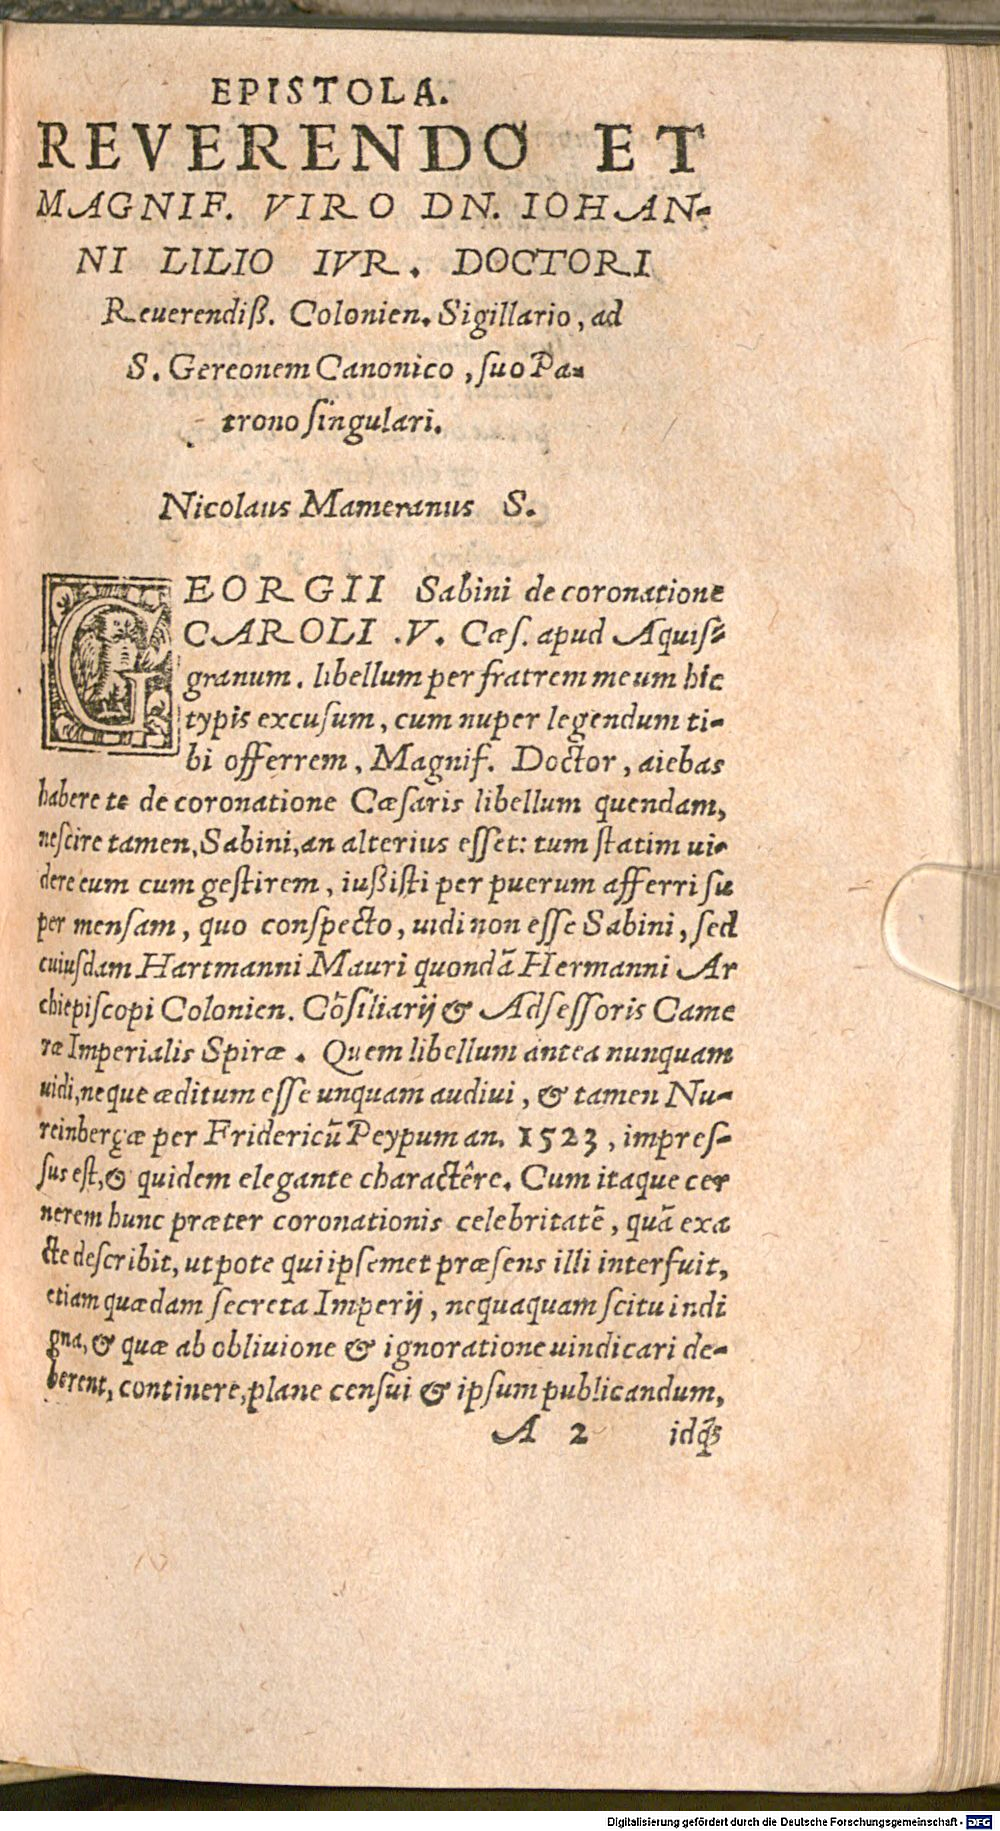 EPISTOLA.
REVERENDO ET
MAGNIF. VIRO DN. IOHAN-
NI LILIO IVR. DOCTORI
Reuerendiß. Colonien. Sigillario, ad
S. Gereonem Canonico, ſuo Pa-
trono ſingulari.
Nicolaus Mameranus S.
GEORGII Sabini de coronatione
CAROLI .V. Cæſ. apud Aquiſ-
granum. libellum per fratrem meum hic
typis excuſum, cum nuper legendum ti-
bi offerrem, Magnif. Doctor, aiebas
habere te de coronatione Cæſaris libellum quendam,
neſcire tamen, Sabini, an alterius eſſet: tum ſtatim ui-
dere eum cum geſtirem, iußiſti per puerum afferri ſu
per menſam, quo conſpecto, uidi non eſſe Sabini, ſed
cuiuſdam Hartmanni Mauri quondā Hermanni Ar
chiepiſcopi Colonien. Cōſiliarij & Adſeſſoris Came
ræ Imperialis Spiræ. Quem libellum antea nunquam
uidi, neque æditum eſſe unquam audiui, & tamen Nu-
reinbergæ per Fridericū Peypum an. 1523, impreſ-
ſus eſt, & quidem elegante charactêre. Cum itaque cer
nerem hunc præter coronationis celebritatē, quā exa
cte deſcribit, utpote qui ipſemet præſens illi interfuit,
etiam quædam ſecreta Imperij, nequaquam ſcitu indi
gna, & quæ ab obliuione & ignoratione uindicari de-
berent, continere, plane cenſui & ipſum publicandum,
A 2 idq́ꝫ
Digitalisierung gefördert durch die Deutsche Forschungsgemeinschaft - DFG